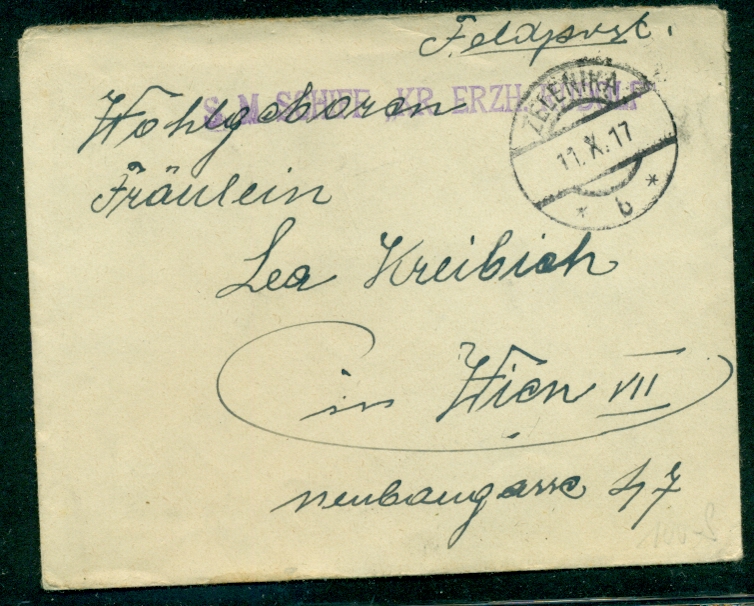 Feldpost.
S.M. SCHIFF KR. ERZH. RUDOLF
ZELENIKA
11. X. 17
* b *
Wohlgeboren
Fräulein
Lea Kreibich
in Wien VII
neubaugasse 47